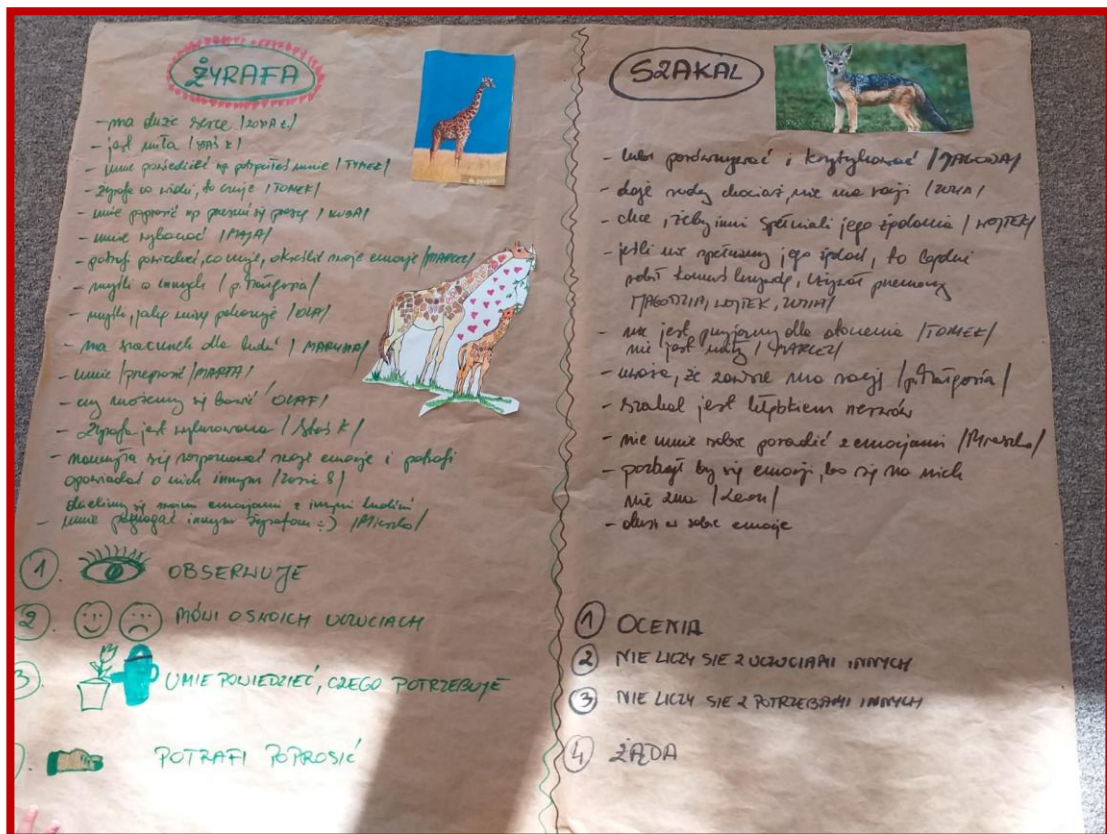 ŻYRAFA
- ma duże serce /ZOSIA Ł/
- jest miła /STAŚ K/
- umie powiedzieć np potrąciłeś mnie /TYMEK/
- żyrafa co widzi, to czuje /TOMEK/
- umie poprosić np przesuń się proszę /KUBA/
- umie wybaczać /MAJA/
- potrafi powiedzieć, co czuje, określić swoje emocje /MARCEL/
- myśli o innych /p. Małgosia/
- myśli, jaką minę pokazuje /OLA/
- ma szacunek dla ludzi /MARYNIA/
- umie przeprosić /MARTA/
- czy możemy się bawić OLAF/
- Żyrafa jest wyluzowana /Staś K/
- nauczyła się rozpoznawać swoje emocje i potrafi
opowiadać o nich innym /Zosia S/
dzielimy się swoimi emocjami z innymi ludźmi
- umie pomagać innym żyrafom :) /Mieszko/
1. OBSERWUJE
2. MÓWI O SWOICH UCZUCIACH
3). UMIE POWIEDZIEĆ, CZEGO POTRZEBUJE
). POTRAFI POPROSIĆ
SZAKAL
- lubi porównywać i krytykować /JAGODA/
- daje rady chociaż nie ma racji /ZUZIA/
- chce, żeby inni spełniali jego żądania /WOJTEK/
- jeśli nie spełnimy jego żądań, to będzie
robił komuś krzywdę, używał przemocy
MAGDZIA, WOJTEK, ZUZIA/
- nie jest przyjazny dla otoczenia /TOMEK/
nie jest miły /MARCEL/
- uważa, że zawsze ma rację /p. Małgosia/
- szakal jest kłębkiem nerwów
- nie umie sobie poradzić z emocjami /Mieszko/
- pozbyłby się emocji, bo się na nich
nie zna /Leon/
- dusi w sobie emocje
1 OCENIA
2 NIE LICZY SIE Z UCZUCIAMI INNYCH
3 NIE LICZY SIE Z POTRZEBAMI INNYCH
4 ŻĄDA